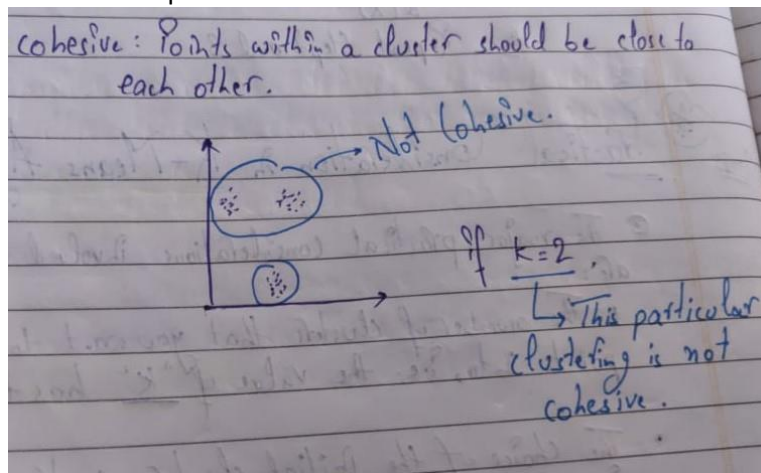 cohesive: Points within a cluster should be close to
each other.
Not Cohesive.
if k=2.
This particular
clustering is not
cohesive.